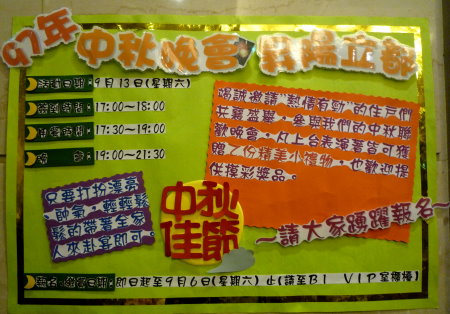 97年 中秋晚會 昇陽立都
活動日期 9月13日(星期六)
報到時間 17:00~18:00
用餐時間 17:30~19:00
晚 會 19:00~21:30
竭誠邀請"熱情有勁"的住戶們
共襄盛舉，參與我們的中秋聯
歡晚會，凡上台表演者皆可獲
贈乙份精美小禮物，也歡迎提
供摸彩獎品。
只要打扮漂亮
、帥氣，輕輕鬆
鬆的帶著全家
人來赴宴即可。
中秋
佳節
～請大家踴躍報名～
即日起至9月6日(星期六)止(請至B1 VIP室櫃檯)